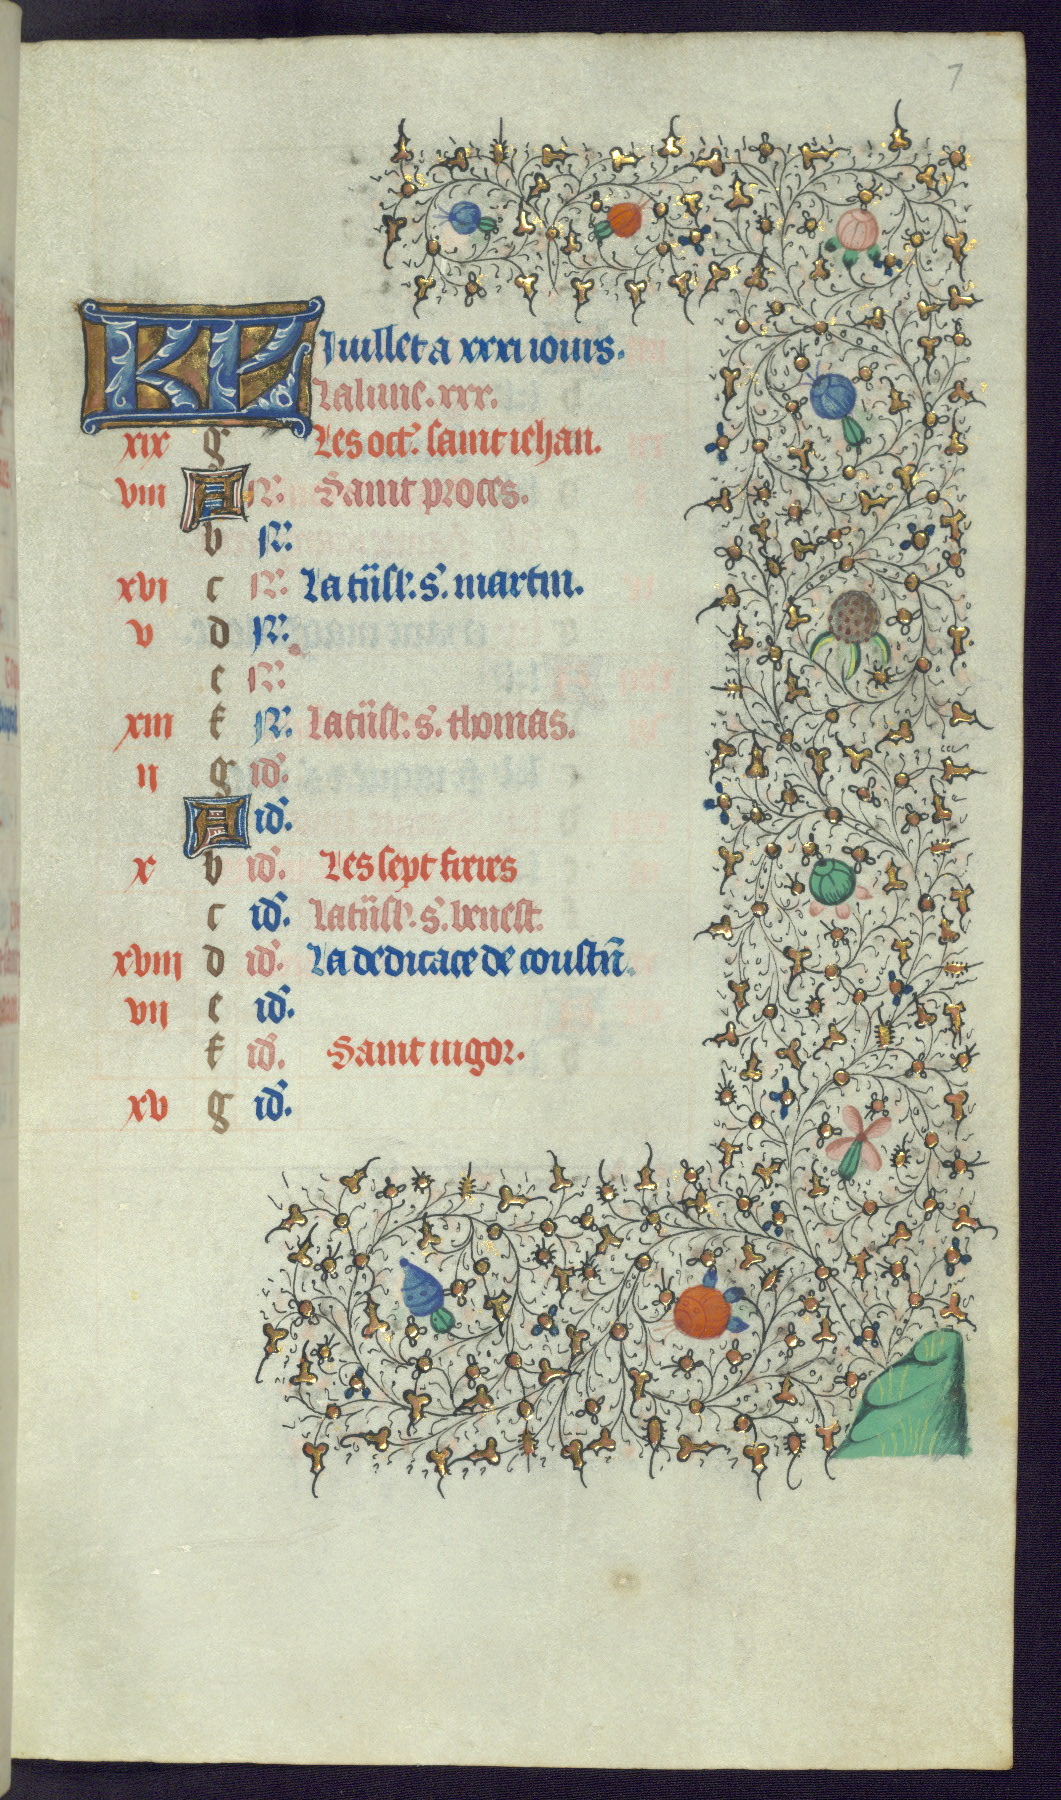 7
KL Juillet a xxxi iours.
La lune. xxx.
xix g Les oct. saint iehan.
viii A N. Saint proces.
b N.
xvi c N. La tñsl. s. martin.
v d N.
e N.
xiii f N. La tñsl. s. thomas.
ii g id.
A id.
x b id. Les sept freres
c id. La tñsl. s. benest.
xviii d id. La dedicace de coustñ.
vii e id.
f id. Saint uigor.
xv g id.